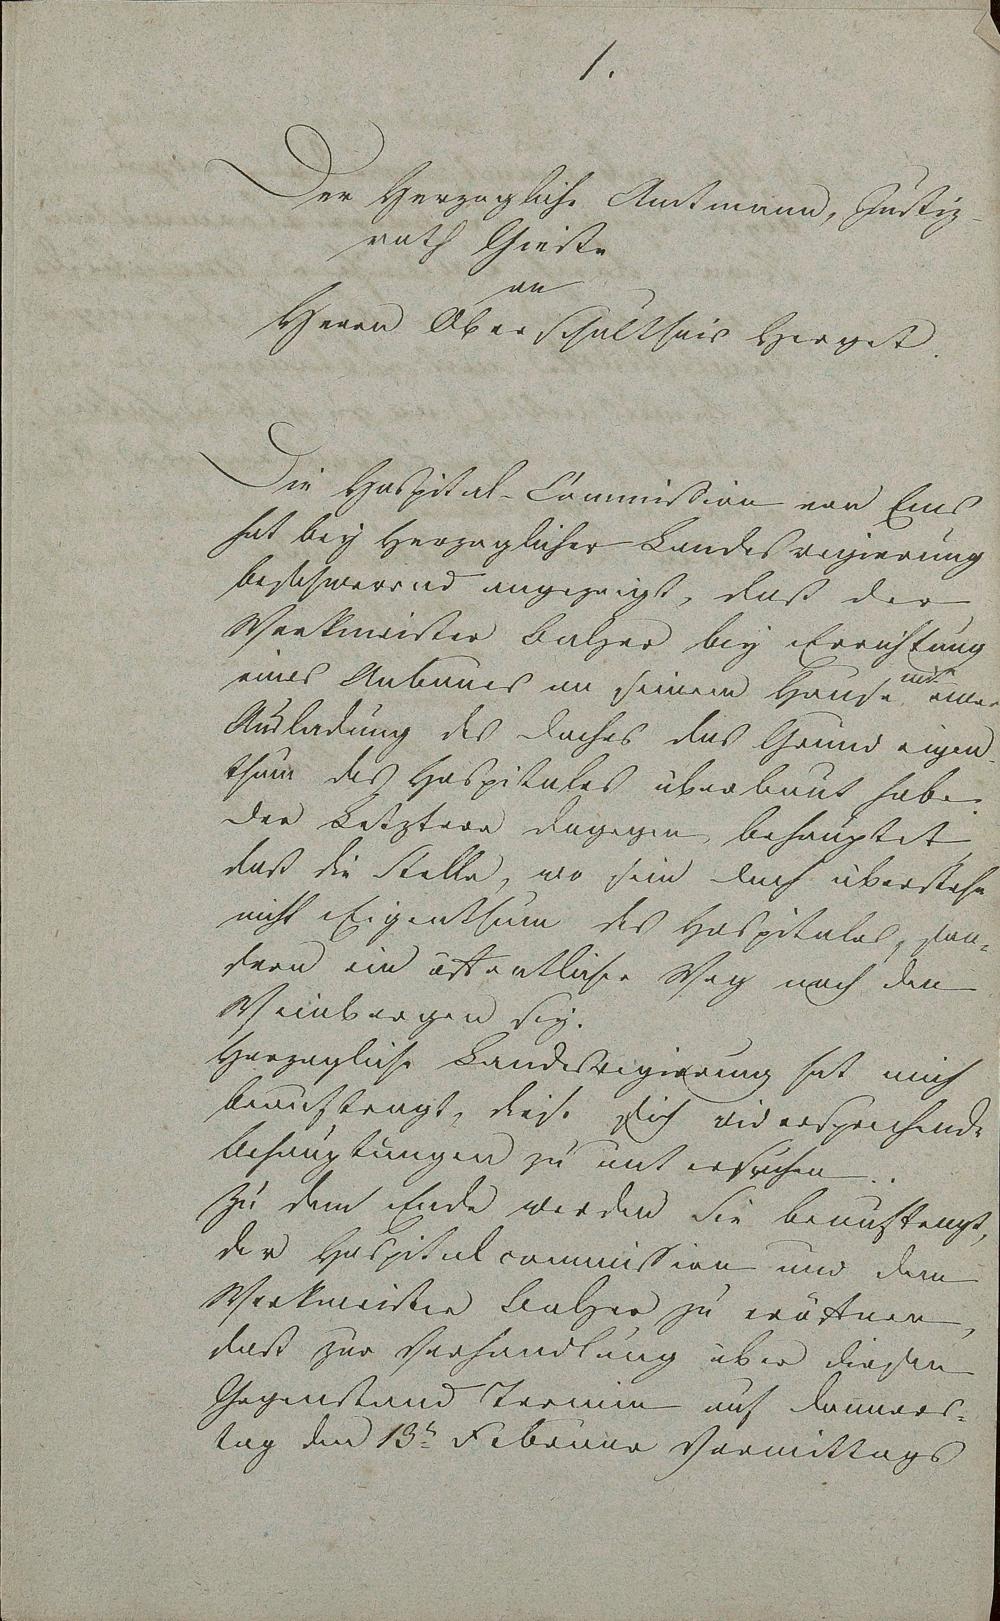 1.
Der Herzogliche Amtmann, Justiz-
rath Gieße
an
Herrn Oberschultheis Herget.
Die Hospital-Commission von Ems
hat bey Herzoglicher Landesregierung
beschwerend angezeigt, daß der
Werkmeister Balzer bey Errichtung
eines Anbaues an seinem Hause mit einer
Ausladung des Daches das Grundeigen-
thum des Hospitales überbaut habe.
Der Letztere dagegen behauptet
daß die Stelle, wo sein Dach überstehe
nicht Eigenthum des Hospitales, son-
dern ein öffentlicher Weg nach den
Weinbergen sey.
Herzogliche Landesregierung hat mich
beauftragt, diese sich widersprechende
Behauptungen zu untersuchen.
Zu dem Ende werden Sie beauftragt,
der Hospitalcommission und dem
Werkmeister Balzer zu eröffnen,
daß zur Verhandlung über diesen
Gegenstand Termin auf Donners-
tag den 13t Februar Vormittags